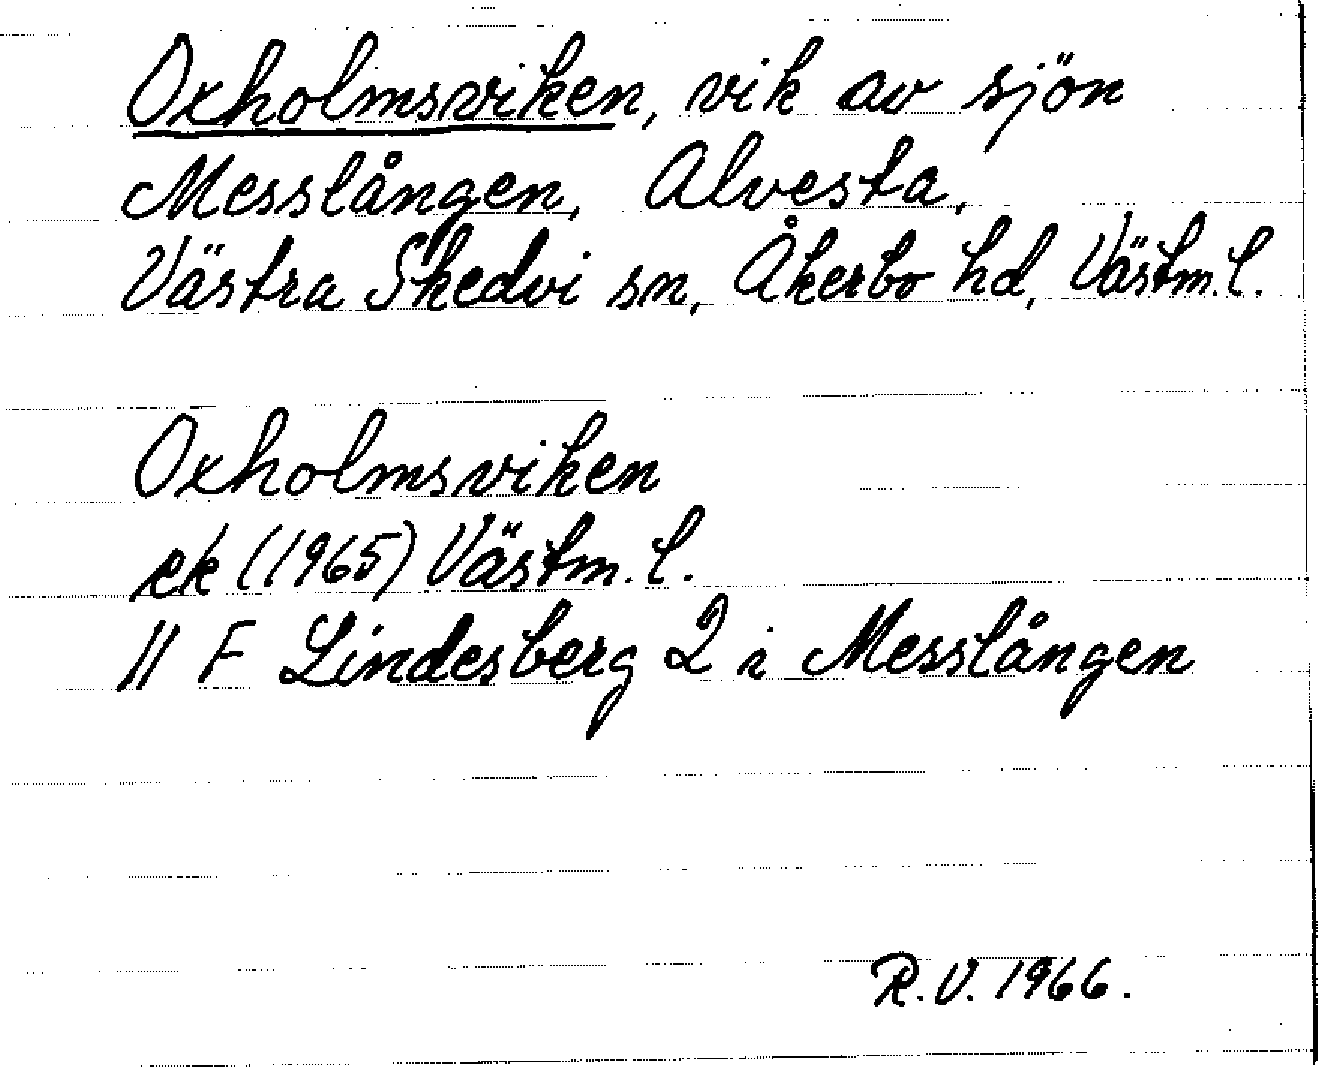 Oxholmsviken, vik av sjön
Messlången, Alvesta,
Västra Skedvi sn, Åkerbo hd, Västm. l.
Oxholmsviken
ek (1965) Västm. l.
11 F Lindesberg 2 i Messlången
R.V. 1966.